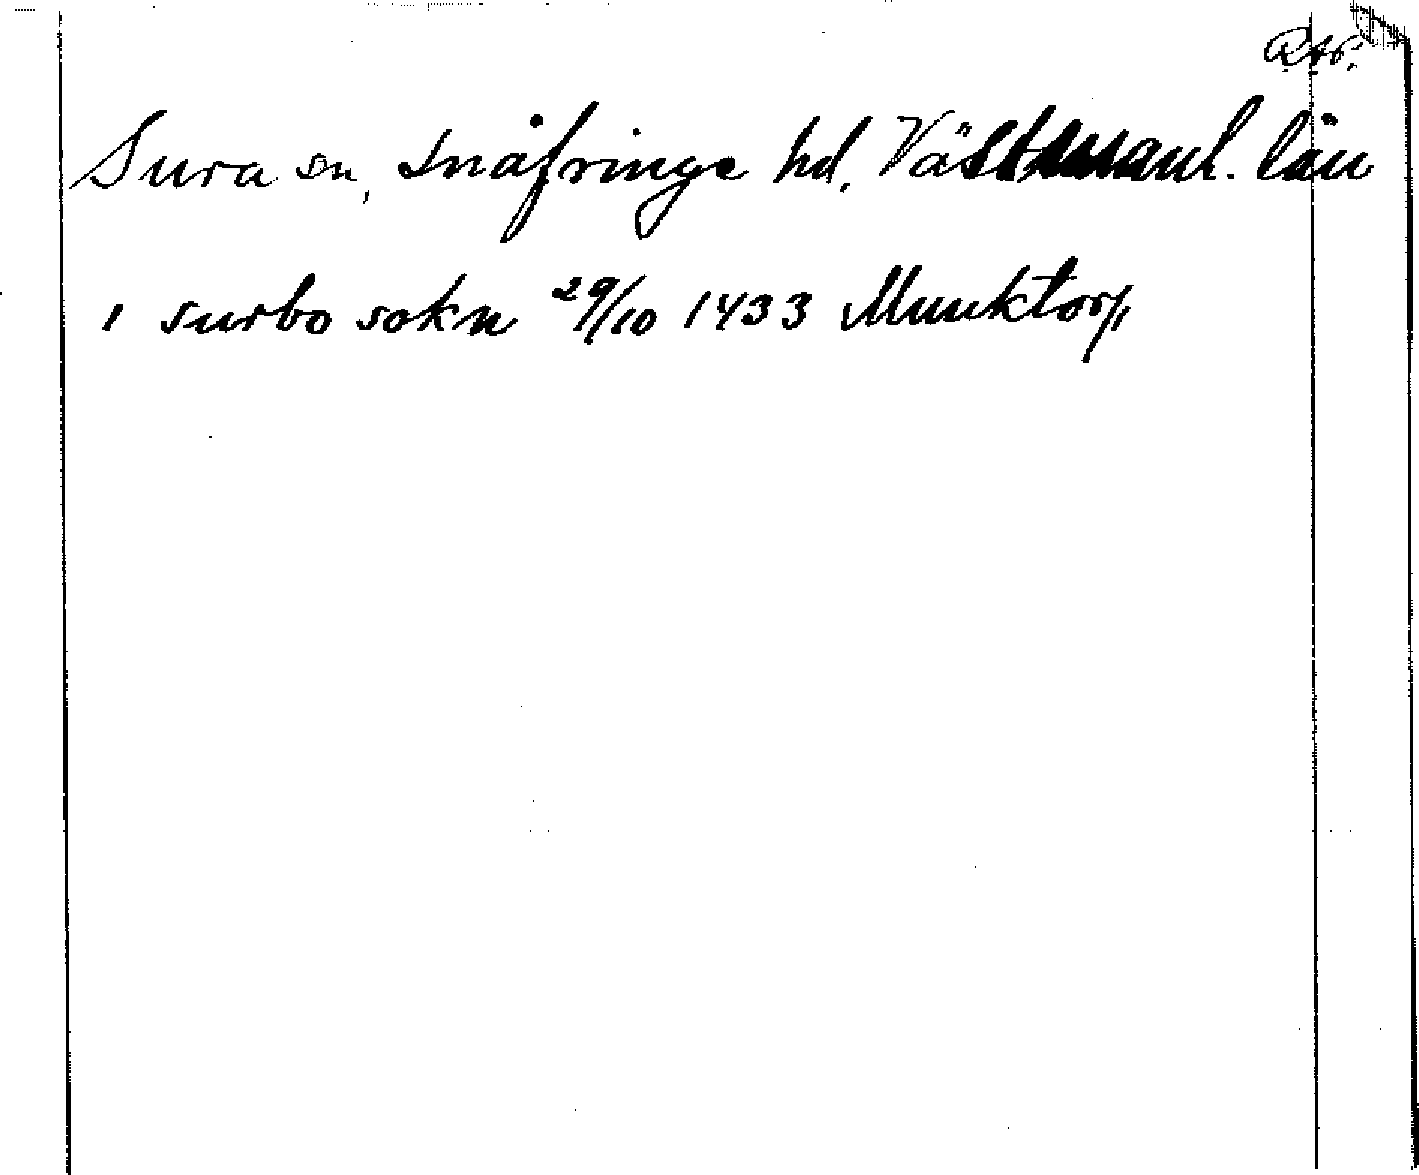 Sura sn, Snåfringe hd. Västmanl. län
i surbo sokn 29/10 1433 Munktorp